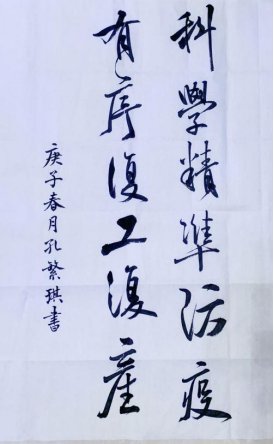 科學精準防疫
有序復工復產
庚子春月孔繁琪書